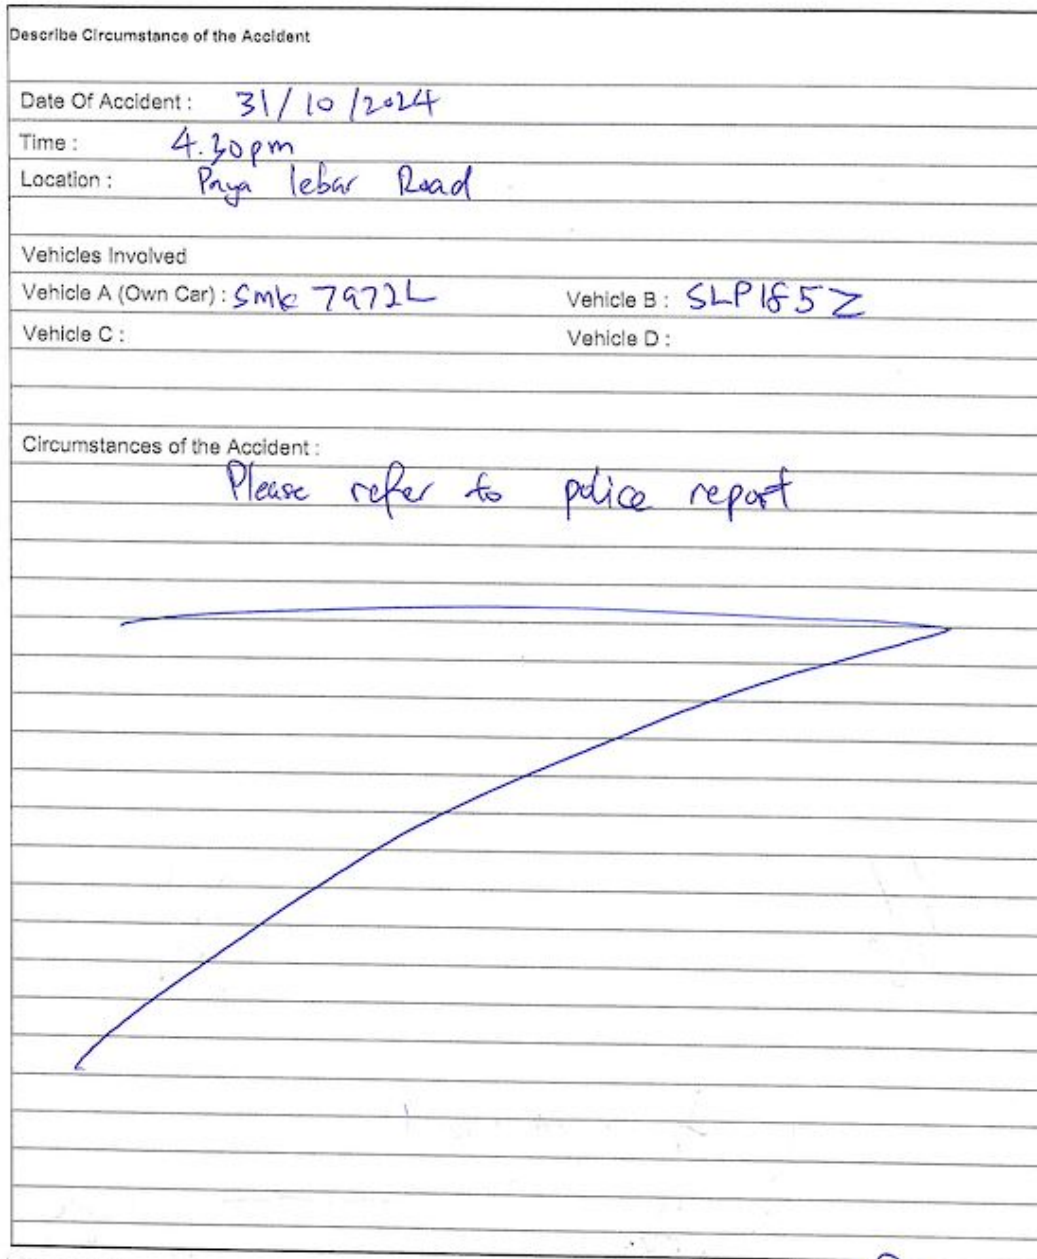 Describe Circumstance of the Accident
Date Of Accident : 31/10/2024
Time : 4.30pm
Location : Paya lebar Road
Vehicles Involved
Vehicle A (Own Car) : Smk 7972L Vehicle B : SLP185Z
Vehicle C : Vehicle D :
Circumstances of the Accident :
Please refer to police report